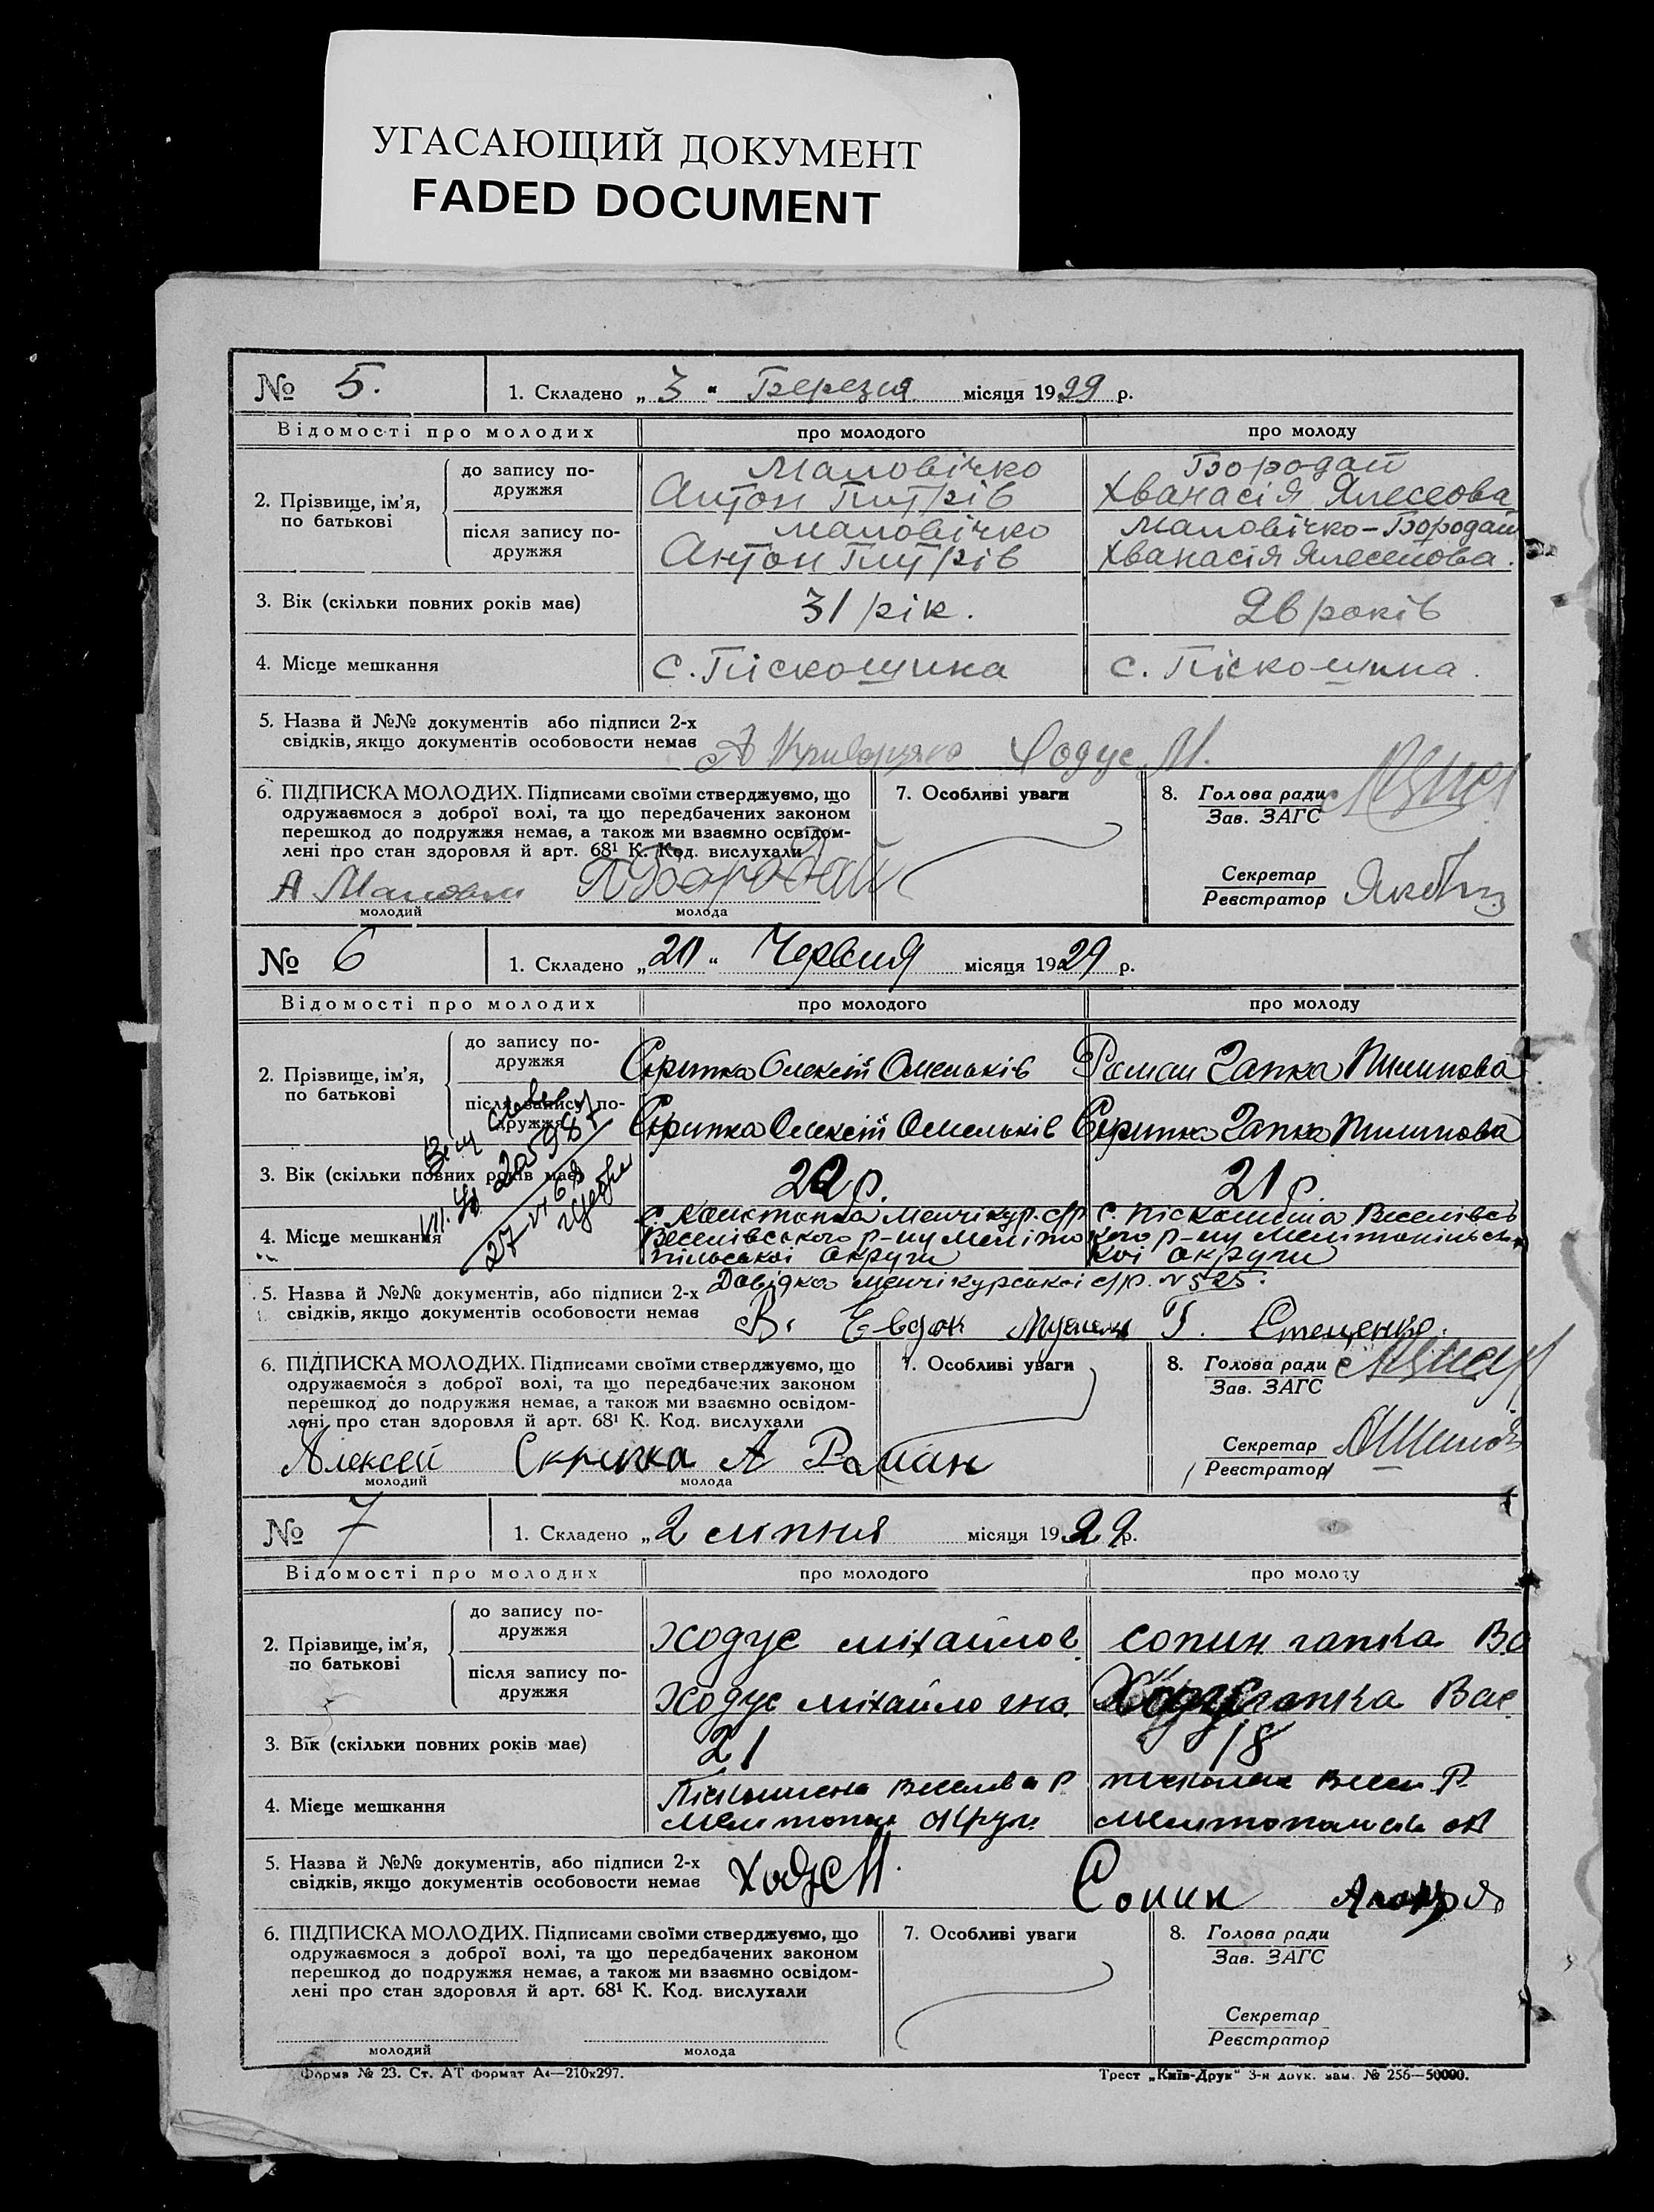 УГАСАЮЩИЙ ДОКУМЕНТ
FADED DOCUMENT
№ 5. 1. Складено „ 3 “ Березня місяця 1929 р.
Відомості про молодих про молодого про молоду
2. Прізвище, ім’я, по батькові
до запису по-
дружжя
Маловічко
Антон Питрів
Бородай
Хванасія
після запису по-
дружжя
Маловічко
Антон Питрів
Маловічко-Бородай
Хванасія
3. Вік (скільки повних років має) 31 рік. 26 років
4. Місце мешкання с. Піскошина с. Піскошина
5. Назва й №№ документів або підписи 2-х
свідків, якщо документів особовости немає Ходус М.
6. ПІДПИСКА МОЛОДИХ. Підписами своїми стверджуємо, що
одружаємося з доброї волі, та що передбачених законом
перешкод до подружжя немає, а також ми взаємно освідом-
лені про стан здоровля й арт. 68¹ К. Код. вислухали
Бородай
молодий молода
7. Особливі уваги
8. Голова ради
Зав. ЗАГС
Секретар
Реєстратор
№ 6 1. Складено „ 20 “ Червня місяця 1929 р.
Відомості про молодих про молодого про молоду
2. Прізвище, ім’я,
по батькові
до запису по-
дружжя
Скрипка Олексій Омельків Роман Гапка Пилипова
після запису по-
дружжя
Скрипка Олексій Омельків Скрипка Гапка Пилипова
3. Вік (скільки повних років має) 22 р. 21 р.
4. Місце мешкання
Менчікур. с/р с. Піскошина Веселівсь
Веселівського р-ну Меліто кого р-ну Мелітопільсь
пільської округи кої округи
Довідка Менчікурської с/р. № 525.
5. Назва й №№ документів, або підписи 2-х
свідків, якщо документів особовости немає В. Евдок Г. Стеценко.
6. ПІДПИСКА МОЛОДИХ. Підписами своїми стверджуємо, що
одружаємося з доброї волі, та що передбачених законом
перешкод до подружжя немає, а також ми взаємно освідом-
лені про стан здоровля й арт. 68¹ К. Код. вислухали
Алексей Скрипка А Роман
молодий молода
7. Особливі уваги
8. Голова ради
Зав. ЗАГС
Секретар
Реєстратор
№ 7 1. Складено „ 2 липня місяця 1929 р.
Відомості про молодих про молодого про молоду
2. Прізвище, ім’я,
по батькові
до запису по-
дружжя
Ходус міхайлов сопин гапка Ва
після запису по-
дружжя
Ходус міхайло гна. Ходус гапка Вас
3. Вік (скільки повних років має) 21 18
4. Місце мешкання
5. Назва й №№ документів, або підписи 2-х
свідків, якщо документів особовости немає Ходус М. Сопин
6. ПІДПИСКА МОЛОДИХ. Підписами своїми стверджуємо, що
одружаємося з доброї волі, та що передбачених законом
перешкод до подружжя немає, а також ми взаємно освідом-
лені про стан здоровля й арт. 68¹ К. Код. вислухали
молодий молода
7. Особливі уваги
8. Голова ради
Зав. ЗАГС
Секретар
Реєстратор
Форма № 23. Ст. АТ формат А4—210х297. Трест „Київ-Друк“ 3-я друк. зам. № 256—50000.